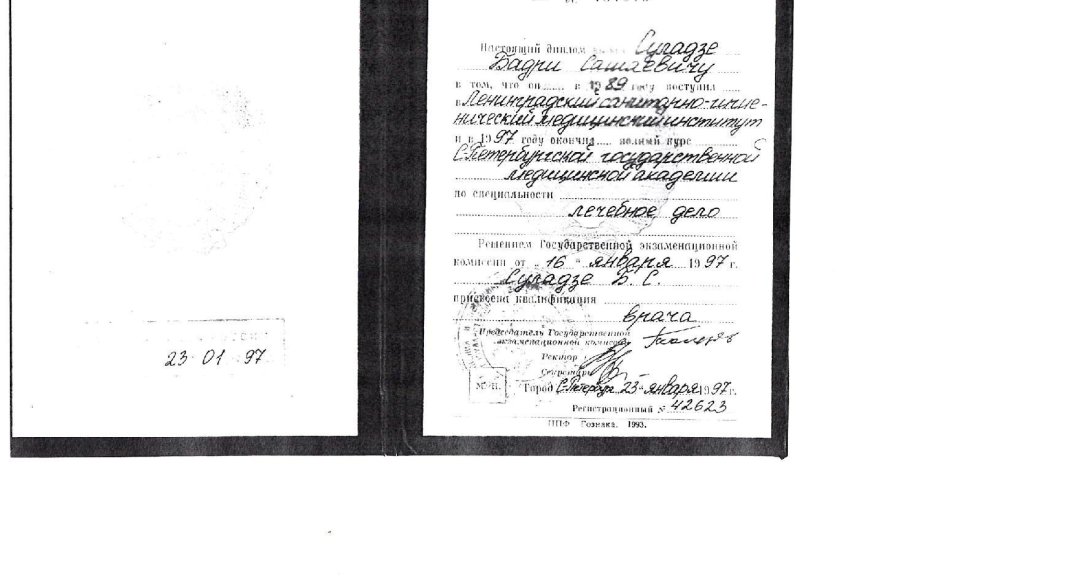 23 01 97
Настоящий диплом выдан Суладзе
Бадри Сашаевичу
в том, что он в 1989 году поступил
в Ленинградский санитарно-гигие-
нический медицинский институт
и в 1997 году окончил полный курс
С.Петербургской государственной
медицинской академии
по специальности
лечебное дело
Решением Государственной экзаменационной
комиссии от „16“ января 1997 г.
Суладзе Б. С.
присвоена квалификация
врача
Председатель Государственной
экзаменационной комиссии
Ректор
Секретарь
М. П. Город С.Петербург 23 января 1997 г.
Регистрационный № 42623
ППФ Гознака. 1993.